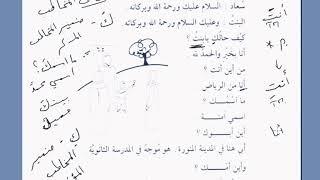 سُعاد : السلام عليك ورحمة الله وبركاته .
البنتُ : وعليك السلام ورحمة الله وبركاته .
كَيْفَ حالُكِ يا بنتُ ؟
أنا بخَيْر والحمدُ لله
من أين أنتِ ؟
أنا من الرياض
ما اسْمُكِ ؟
اسمي آمنة
أين أبوك ؟
أبي هنا في المدينة المنورة. هو مُوَجِّهٌ في المدرسة الثانويَّة
وأين أمُّكِ ؟
أنتَ
يا
أنتِ
أنا
كَ - ضمير المخاطب
ما اسمكَ؟
اسمي محمد
بيتكَ
جميل
كِ - ضمير
المخاطب